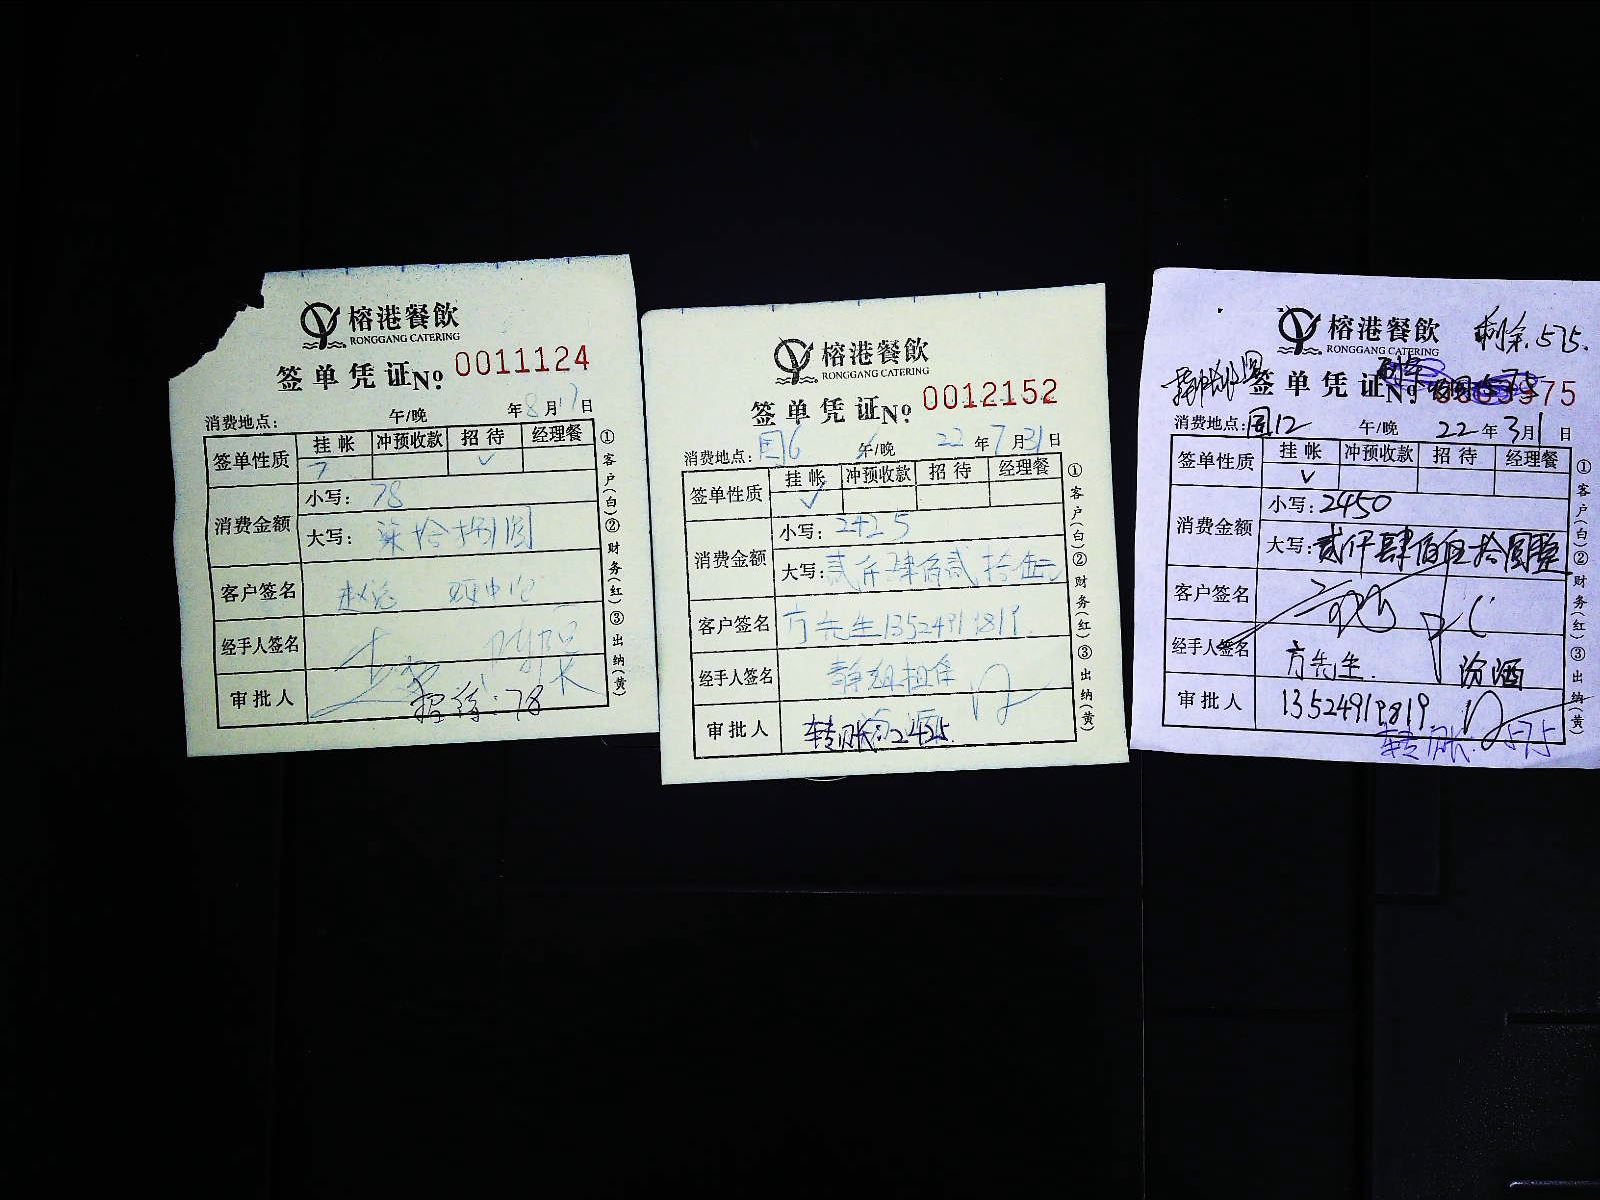 榕港餐飲
RONGGANG CATERING
签单凭证No. 0011124
消费地点: 午/晚 年8月17日
签单性质 挂帐 冲预收款 招待 经理餐
✓
消费金额 小写: 78
大写: 柒拾捌圆
客户签名 赵总
经手人签名
审批人 招待: 78
①客户(白)②财务(红)③出纳(黄)
榕港餐飲
RONGGANG CATERING
签单凭证No. 0012152
消费地点: 国6 午/晚 22年7月31日
签单性质 挂帐 冲预收款 招待 经理餐
✓
消费金额 小写: 2425
大写: 贰仟肆佰贰拾伍元
客户签名 方先生13524919819
经手人签名 静姐担保
审批人 转账: 2425.
①客户(白)②财务(红)③出纳(黄)
榕港餐飲 剩余.575.
RONGGANG CATERING
签单凭证No. 75
消费地点: 国12 午/晚 22年3月1日
签单性质 挂帐 冲预收款 招待 经理餐
✓
消费金额 小写: 2450
大写: 贰仟肆佰伍拾圆整
客户签名
经手人签名 方先生. 汾酒
审批人 13524919819
转账: 575
①客户(白)②财务(红)③出纳(黄)